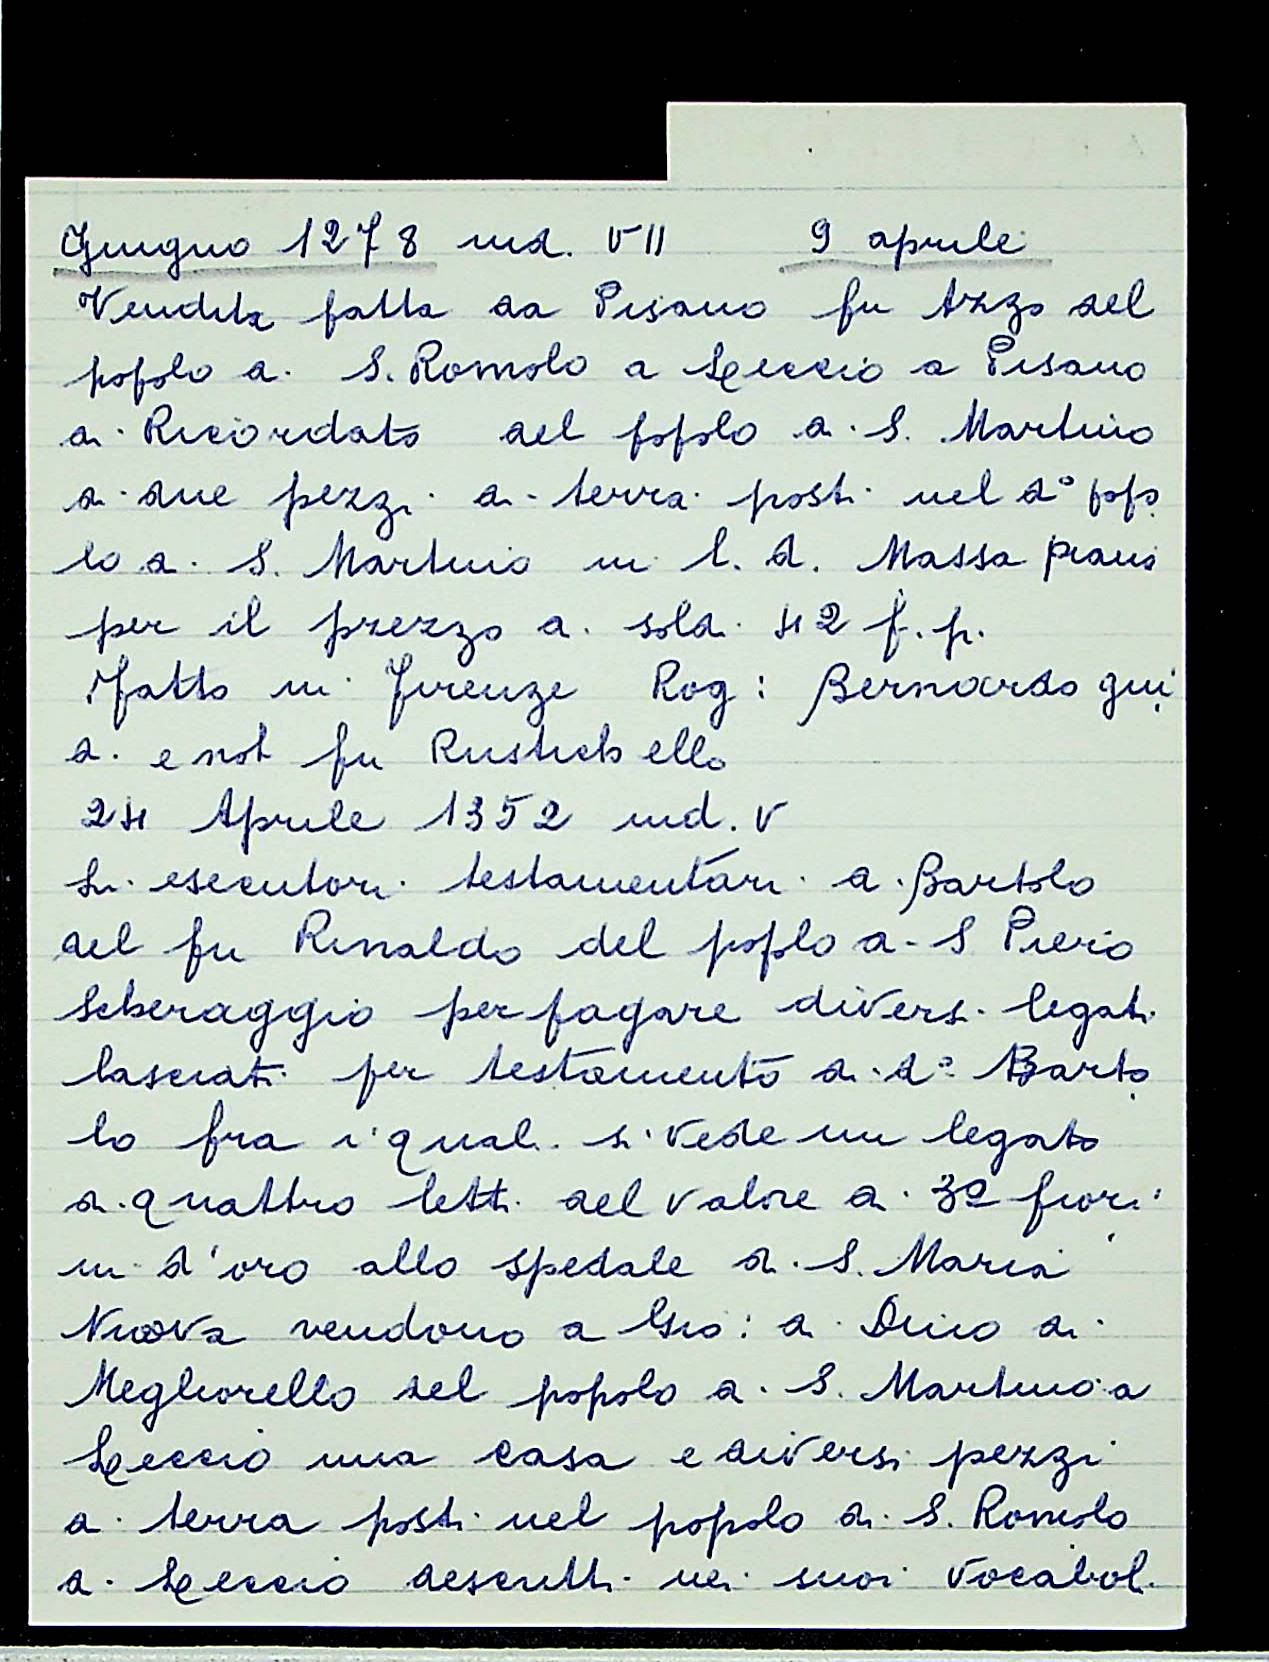 Giugno 1278 ind. VII 9 aprile
Vendita fatta da Pisano fu Azzo del
popolo di S. Romolo a Leccio a Pisano
di Ricordato del popolo di S. Martino
di due pezzi di terra posti nel do popo
lo di S. Martino in l. d. Massa piano
per il prezzo di soldi 42 f. p.
fatto in Firenze Rog: Bernardo giu
d. e not fu Rustichello
24 Aprile 1352 ind. V
Li esecutori testamentari di Bartolo
del fu Rinaldo del popolo di S Piero
Scheraggio per pagare diversi legati
lasciati per testamento di do Barto
lo fra i quali si vede un legato
di quattro letti del valore di 30 fiori
ni d'oro allo spedale di S. Maria
Nuova vendono a Gio: di Dino di
Megliorello del popolo di S. Martino a
Leccio una casa e diversi pezzi
di terra posti nel popolo di S. Romolo
a Leccio descritti nei suoi vocaboli